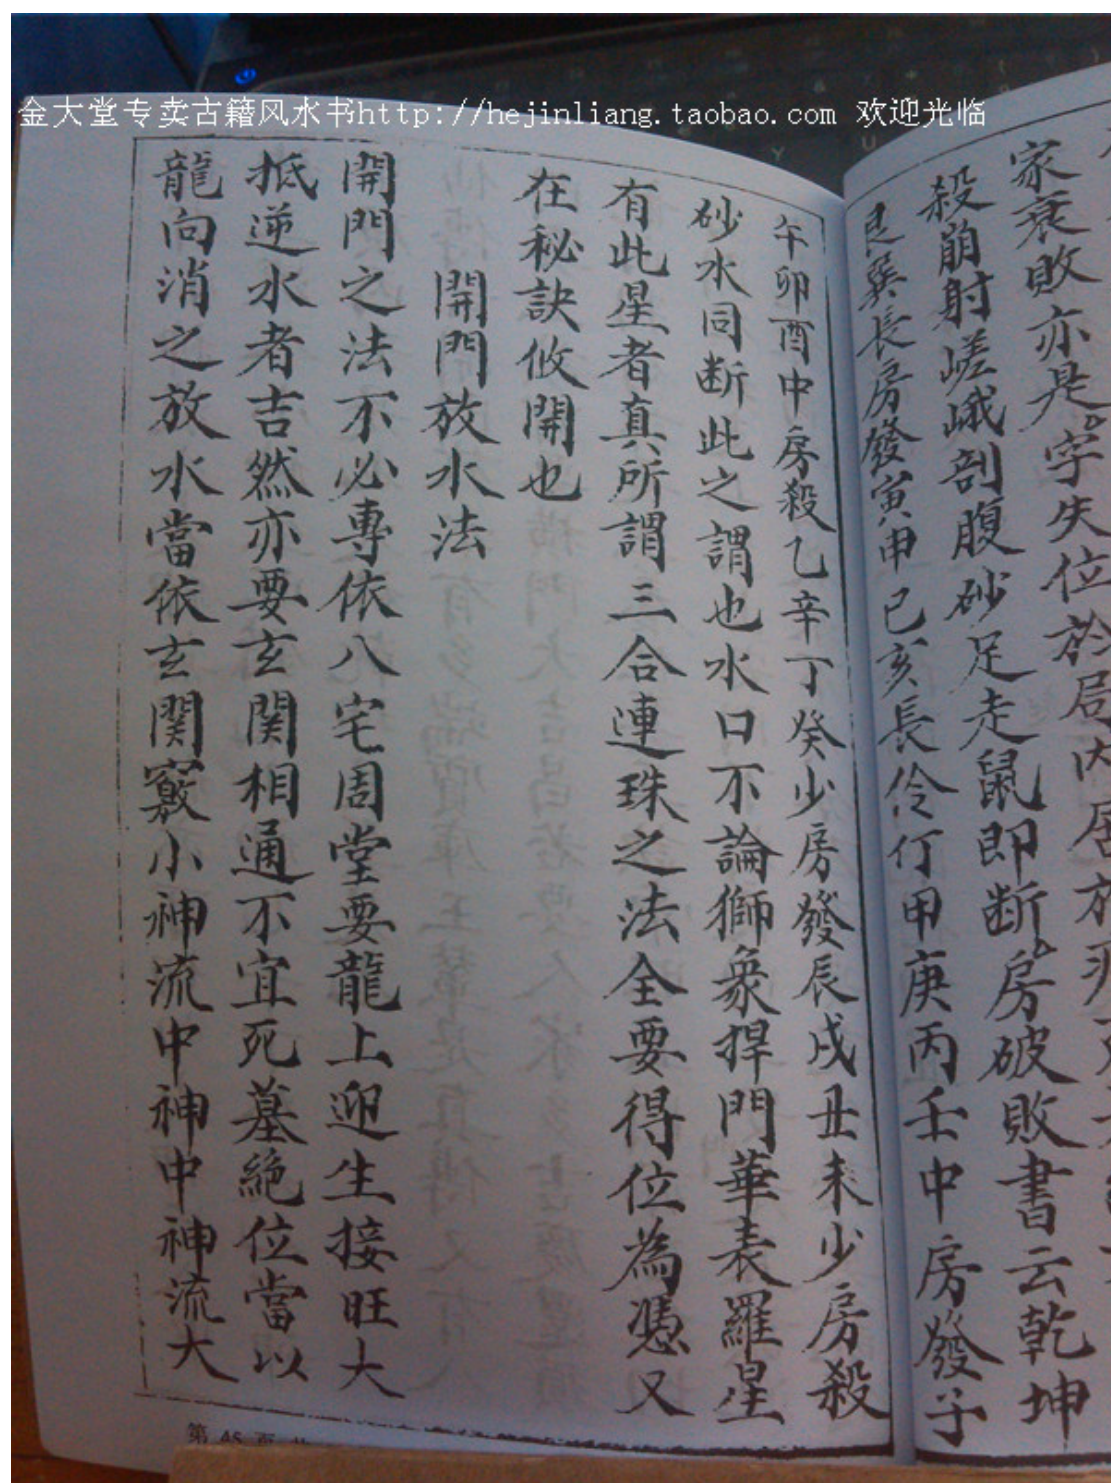 金大堂专卖古籍风水书http://hejinliang.taobao.com 欢迎光临
家衰敗亦是字失位於局内居
殺崩射嵯峨剖腹砂足走鼠即断房破敗書云乾坤
艮巽長房發寅申巳亥長伶仃甲庚丙壬中房發子
午卯酉中房殺乙辛丁癸少房發辰戌丑未少房殺
砂水同断此之謂也水口不論獅象捍門華表羅星
有此星者真所謂三合連珠之法全要得位為憑又
在秘訣攸開也
開門放水法
開門之法不必專依八宅周堂要龍上迎生接旺大
抵逆水者吉然亦要玄関相通不宜死墓絶位當以
龍向消之放水當依玄関竅小神流中神中神流大
第 45 页